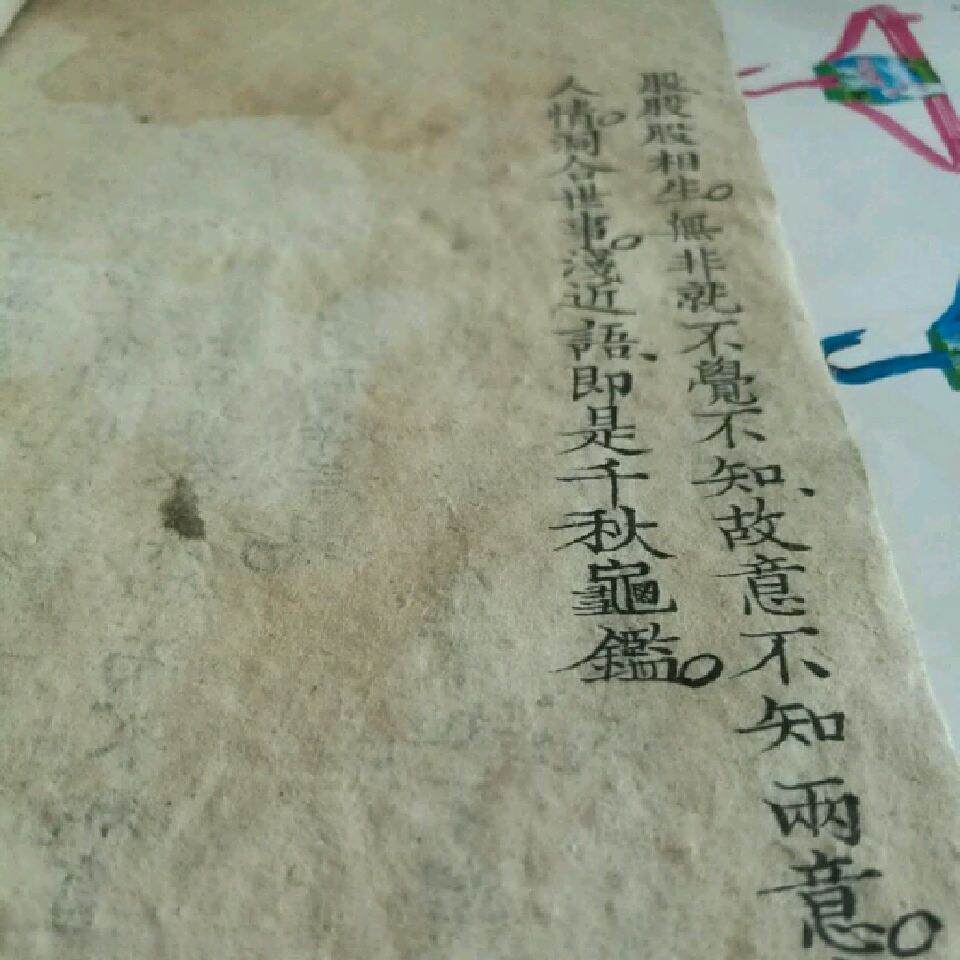 股股股相生。無非就不覺不知、故意不知兩意。
人情。洞合世事。淺近語、即是千秋龜鑑。